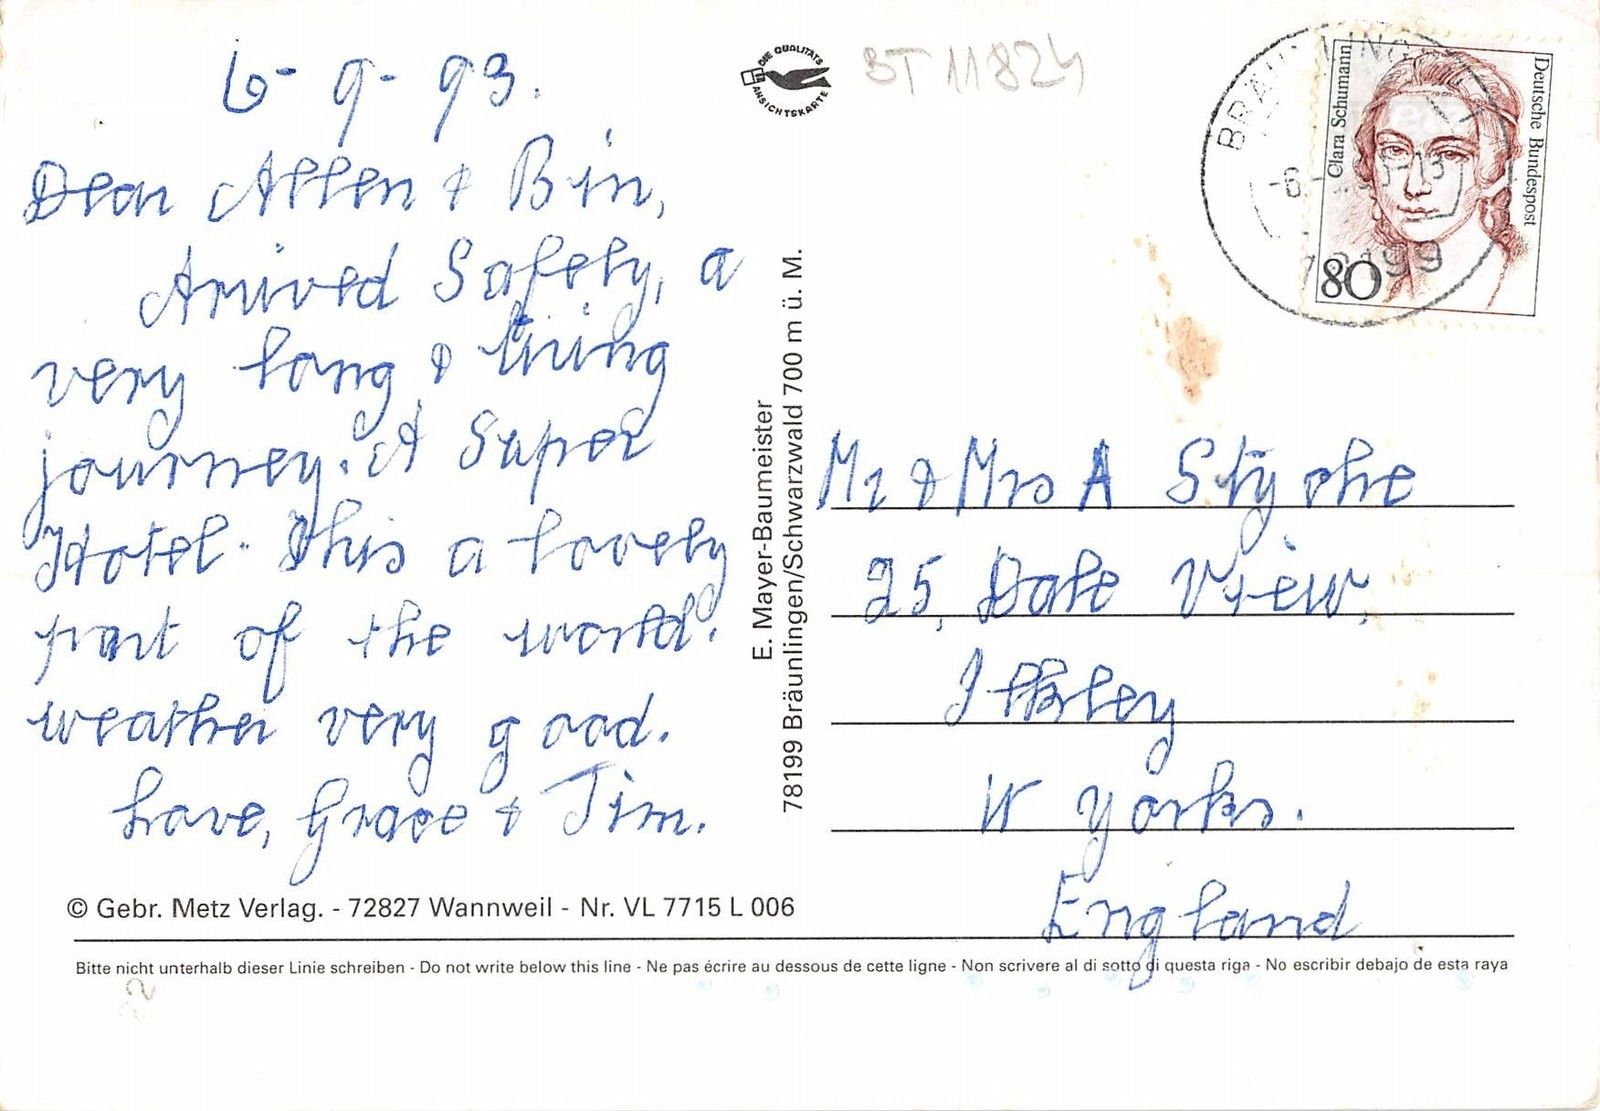 6-9-93.
Dear Allen & Bin,
Arrived Safely, a
very long & tiring
journey. A Super
Hotel. This a lovely
part of the world.
weather very good.
Love, Grace & Jim.
© Gebr. Metz Verlag. - 72827 Wannweil - Nr. VL 7715 L 006
Bitte nicht unterhalb dieser Linie schreiben - Do not write below this line - Ne pas écrire au dessous de cette ligne - Non scrivere al di sotto di questa riga - No escribir debajo de esta raya
DIE QUALITÄTS
ANSICHTSKARTE
BT 11824
E. Mayer-Baumeister
78199 Bräunlingen/Schwarzwald 700 m ü. M.
Clara Schumann
Deutsche Bundespost
80
78199
Mr & Mrs A Styche
25, Dale View,
Ilkley
W Yorks.
England